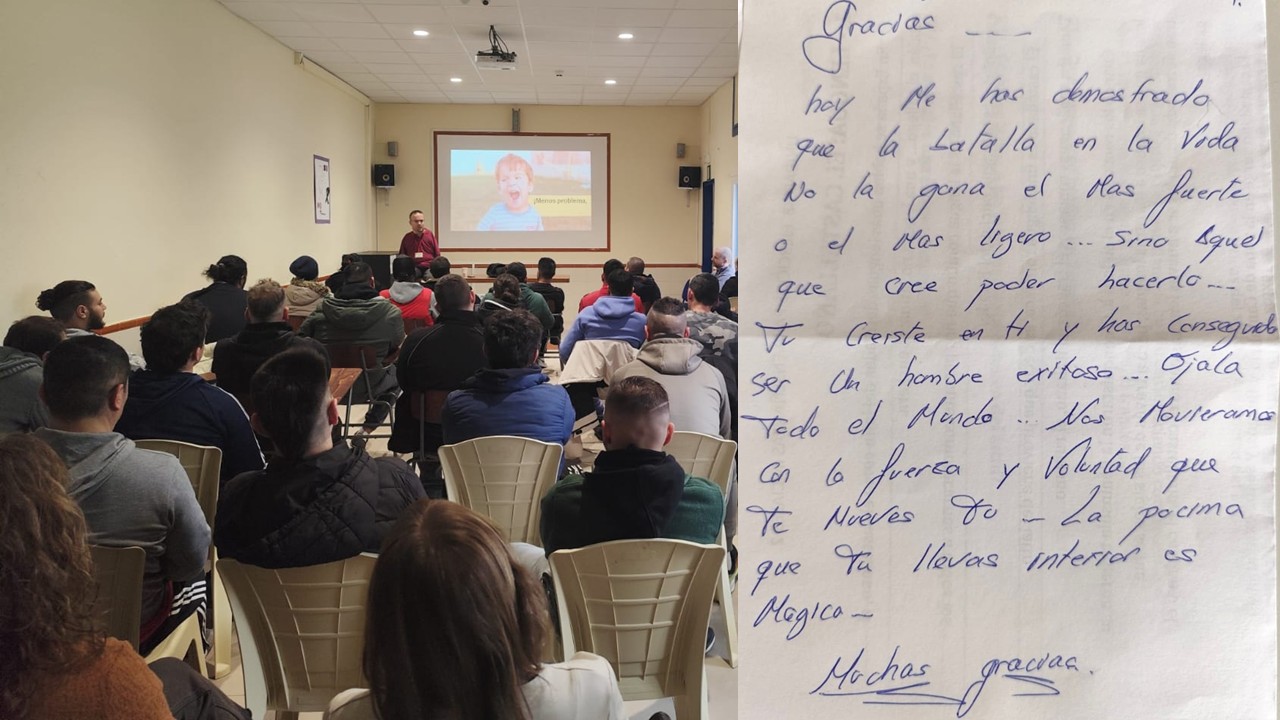 ¡Menos problema,
Gracias ----
hoy Me has demostrado
que la batalla en la Vida
No la gana el Mas fuerte
o el Mas ligero... Sino Aquel
que cree poder hacerlo...
Tu Creiste en ti y has Conseguido
ser Un hombre exitoso... Ojala
Todo el Mundo... Nos Movieramos
Con la fuerza y Voluntad que
Te Mueves Tu - La pocima
que Tu llevas interior es
Magica -
Muchas gracias.